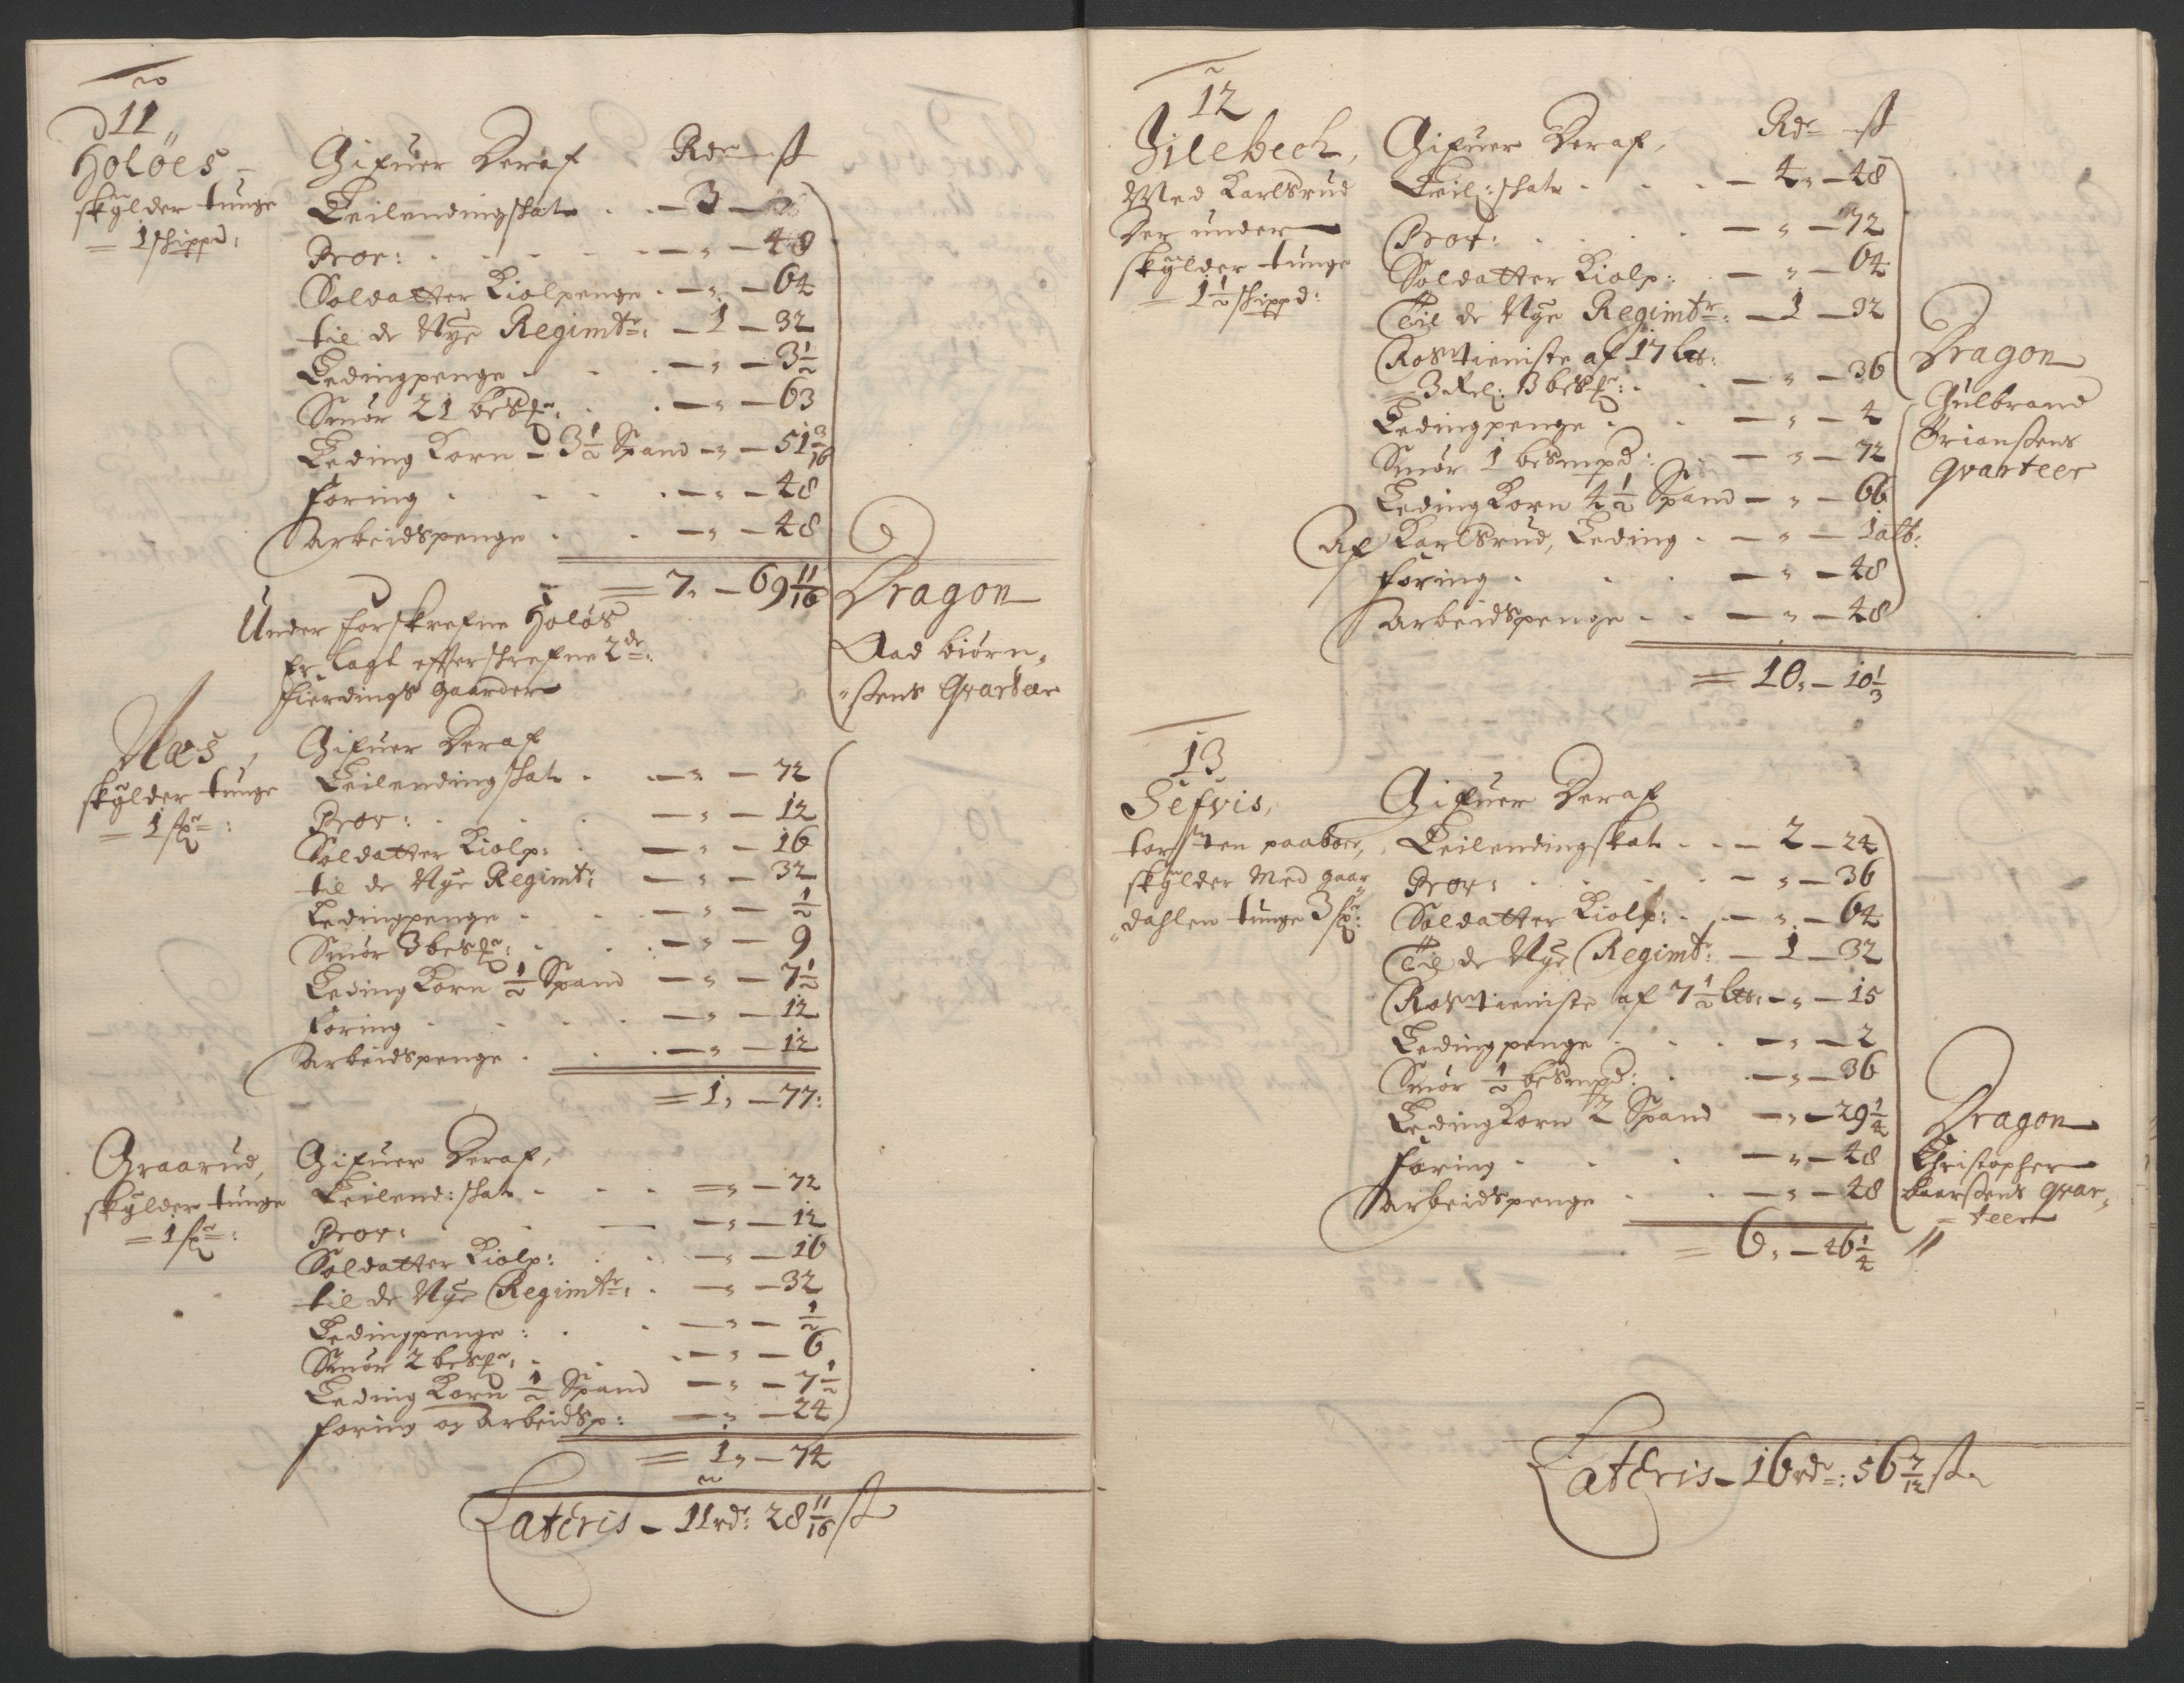 11
Holöes
skylder tunge
= 1 schippd:
Gifuer Deraf Rdr ß
Leilendingschat - 3 -
Prov: - " - 48
Soldatter Kiolpenge - " - 64
til de Nye Regimtr: - 1 - 32
Ledingpenge - " - 3½
Smör 21 besmr: - " - 63
Leding Korn - 3½ Spand - " - 51 3/16
foring - " - 48
Arbeidspenge - " - 48
= 7 " - 69 11/16
Dragon
Aad biørn„
„sens Qvarteer
Under forskrefne Holøs
Er lagt efterschrefne 2de:
fierdings gaarder
Næs,
skylder tunge
= 1 fr:
Gifuer Deraf
Leilendingschat - " - 72
Prov: - " - 12
Soldatter Kiolp: - " - 16
til de Nye Regimtr: - " - 32
Ledingpenge - " - ½
Smör 3 besmr: - " - 9
Leding Korn ½ Spand - " - 7½
foring - " - 12
Arbeidspenge - " - 12
= 1 " - 77:
Graarud,
skylder tunge
= 1 fr:
Gifuer Deraf,
Leilend: schat - " - 72
Prov: - " - 12
Soldatter Kiolp: - " - 16
til de Nye Regimtr: - " - 32
Ledingpenge: - " - ½
Smör 2 besmr: - " - 6
Leding Korn ½ Spand - " - 7½
foring og Arbeidsp: - " - 24
= 1 " - 74
Lateris - 11 rdr: 28 11/16 ß
12
Jilebech,
Med Karlsrud
Der under
skylder tunge
= 1½ schippd:
Gifuer Deraf, Rdr ß
Leil: schat - 4 " - 48
Prov: - " - 72
Soldatter Kiolp: - " - 64
Til de Nye Regimtr: - 1 - 32
Rostieniste af 17 
= 3 fel: 3 besmr: - " - 36
Ledingpenge - " - 4
Smör 1 besmpd: - " - 72
Leding Korn 4½ Spand - " - 66
Af Karlsrud, Leding - " - 1 alb:
foring - " - 48
Arbeidspenge - " - 48
= 10 " - 10⅓
Dragon
Gulbrand
Driansens
Qvarteer
13
Sefvis,
torsten paaboer,
skylder Med gaar„
„dahlen tunge 3 fr:
Gifuer Deraf
Leilendingskat - 2 - 24
Prov: - " - 36
Soldatter Kiolp: - " - 64
Til de Nye Regimtr: - 1 - 32
Rostieniste af 7½ - " - 15
Ledingpenge - " - 2
Smör ½ besmpd: - " - 36
Leding Korn 2 Spand - " - 29¼
foring - " - 48
Arbeidspenge - " - 48
= 6 " - 46¼
Dragon
Christopher
Laarsens Qvar„
= teer
Lateris - 16 rdr: 56 7/12 ß